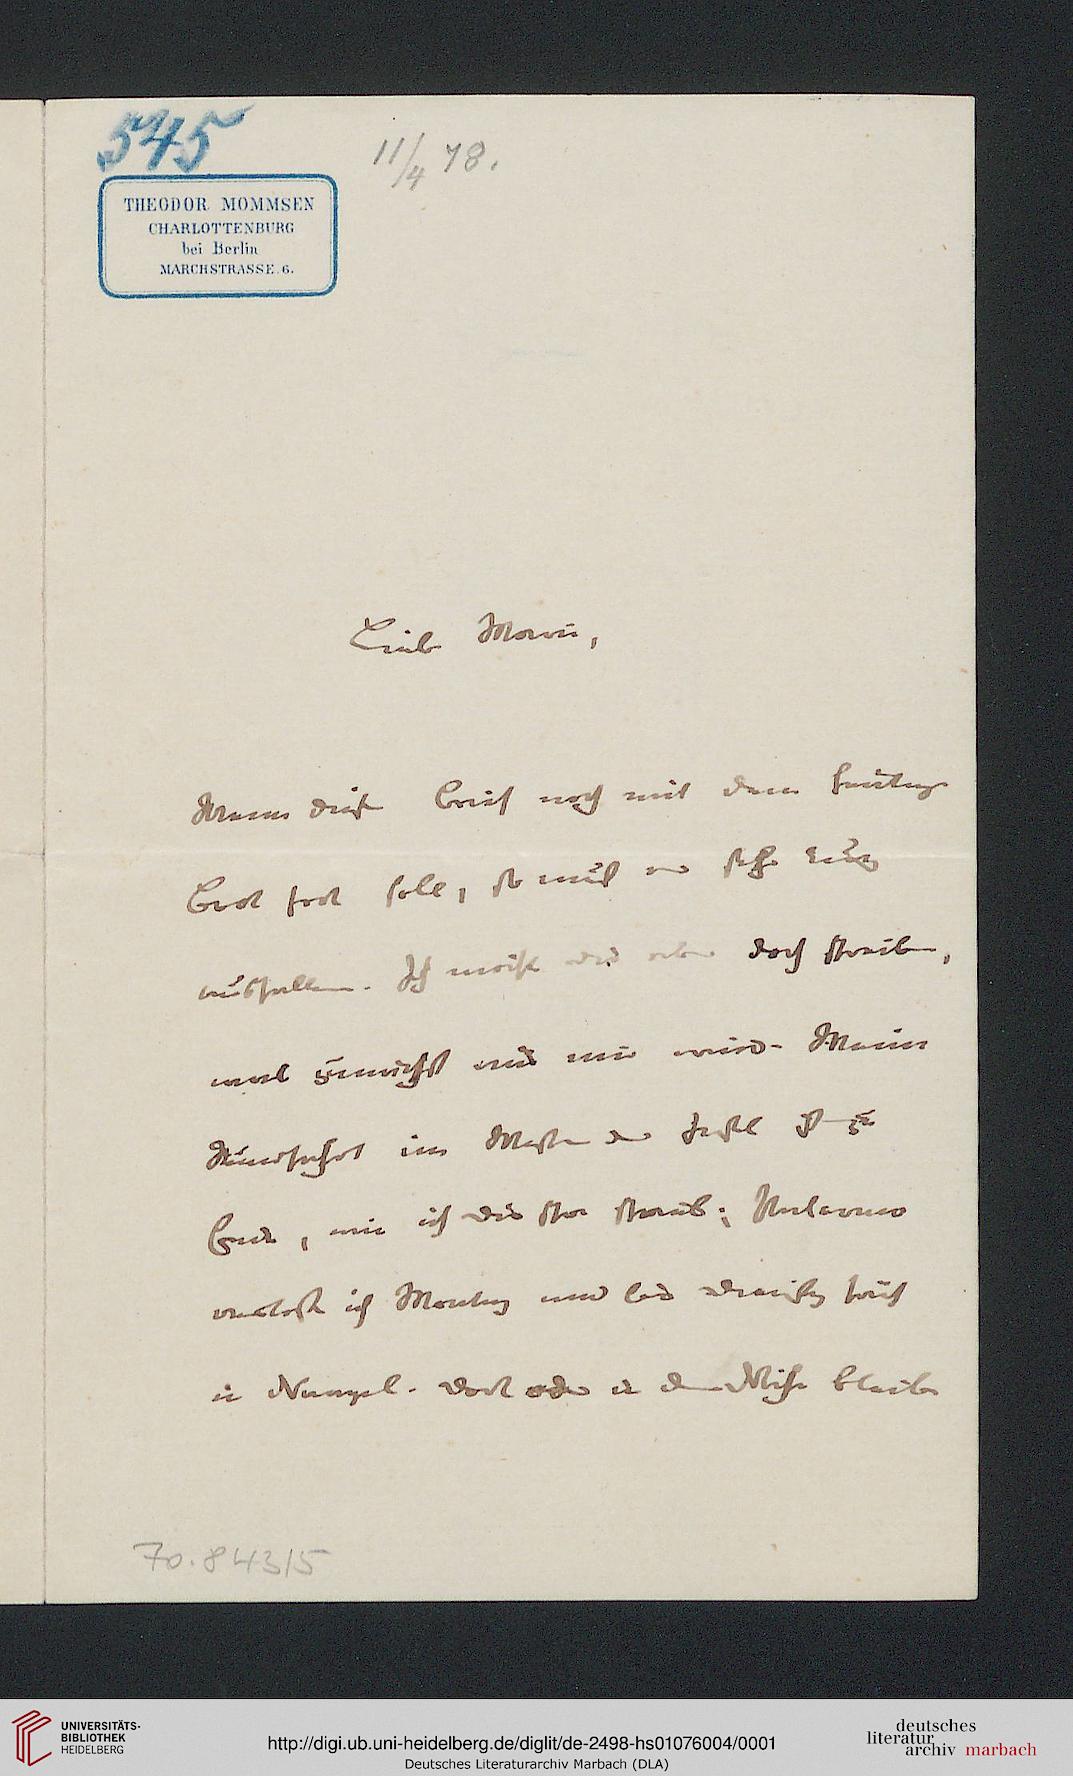 545
11/4 78.
THEODOR MOMMSEN
CHARLOTTENBURG
bei Berlin
MARCHSTRASSE. 6.
Liebe Marie,
Wenn dieser Brief noch mit dem heutigen
Boot fort soll, so muß er sehr kurz
ausfallen. Ich möchte dir aber doch schreiben,
was zunächst aus mir wird. Meine
Rundfahrt im Westen der Insel ist zu
Ende, wie ich dir schon schrieb; Palermo
verlasse ich Montag und bin Dienstag früh
in Neapel. Dort oder in der Nähe bleibe
70.843/5
UNIVERSITÄTS-
BIBLIOTHEK
HEIDELBERG
http://digi.ub.uni-heidelberg.de/diglit/de-2498-hs01076004/0001
Deutsches Literaturarchiv Marbach (DLA)
deutsches
literatur
archiv marbach